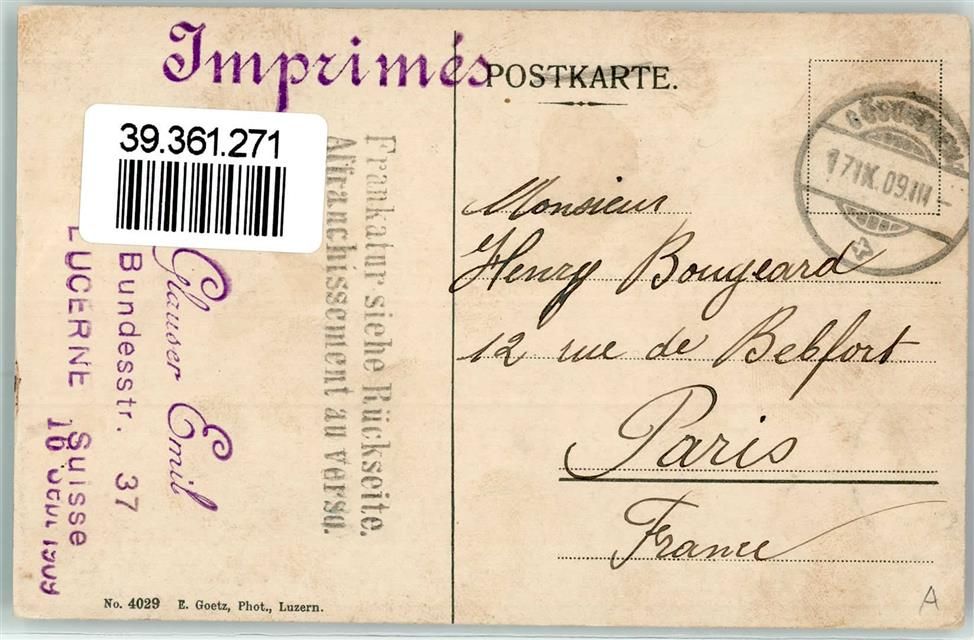 Imprimés
POSTKARTE.
39.361.271
Frankatur siehe Rückseite.
Affranchissement au verso.
Glauser Emil
Bundesstr. 37
LUCERNE Suisse
1909
17.IX.09.III
Monsieur
Henry Bougeard
12 rue de Belfort
Paris
France
No. 4029 E. Goetz, Phot., Luzern.
A